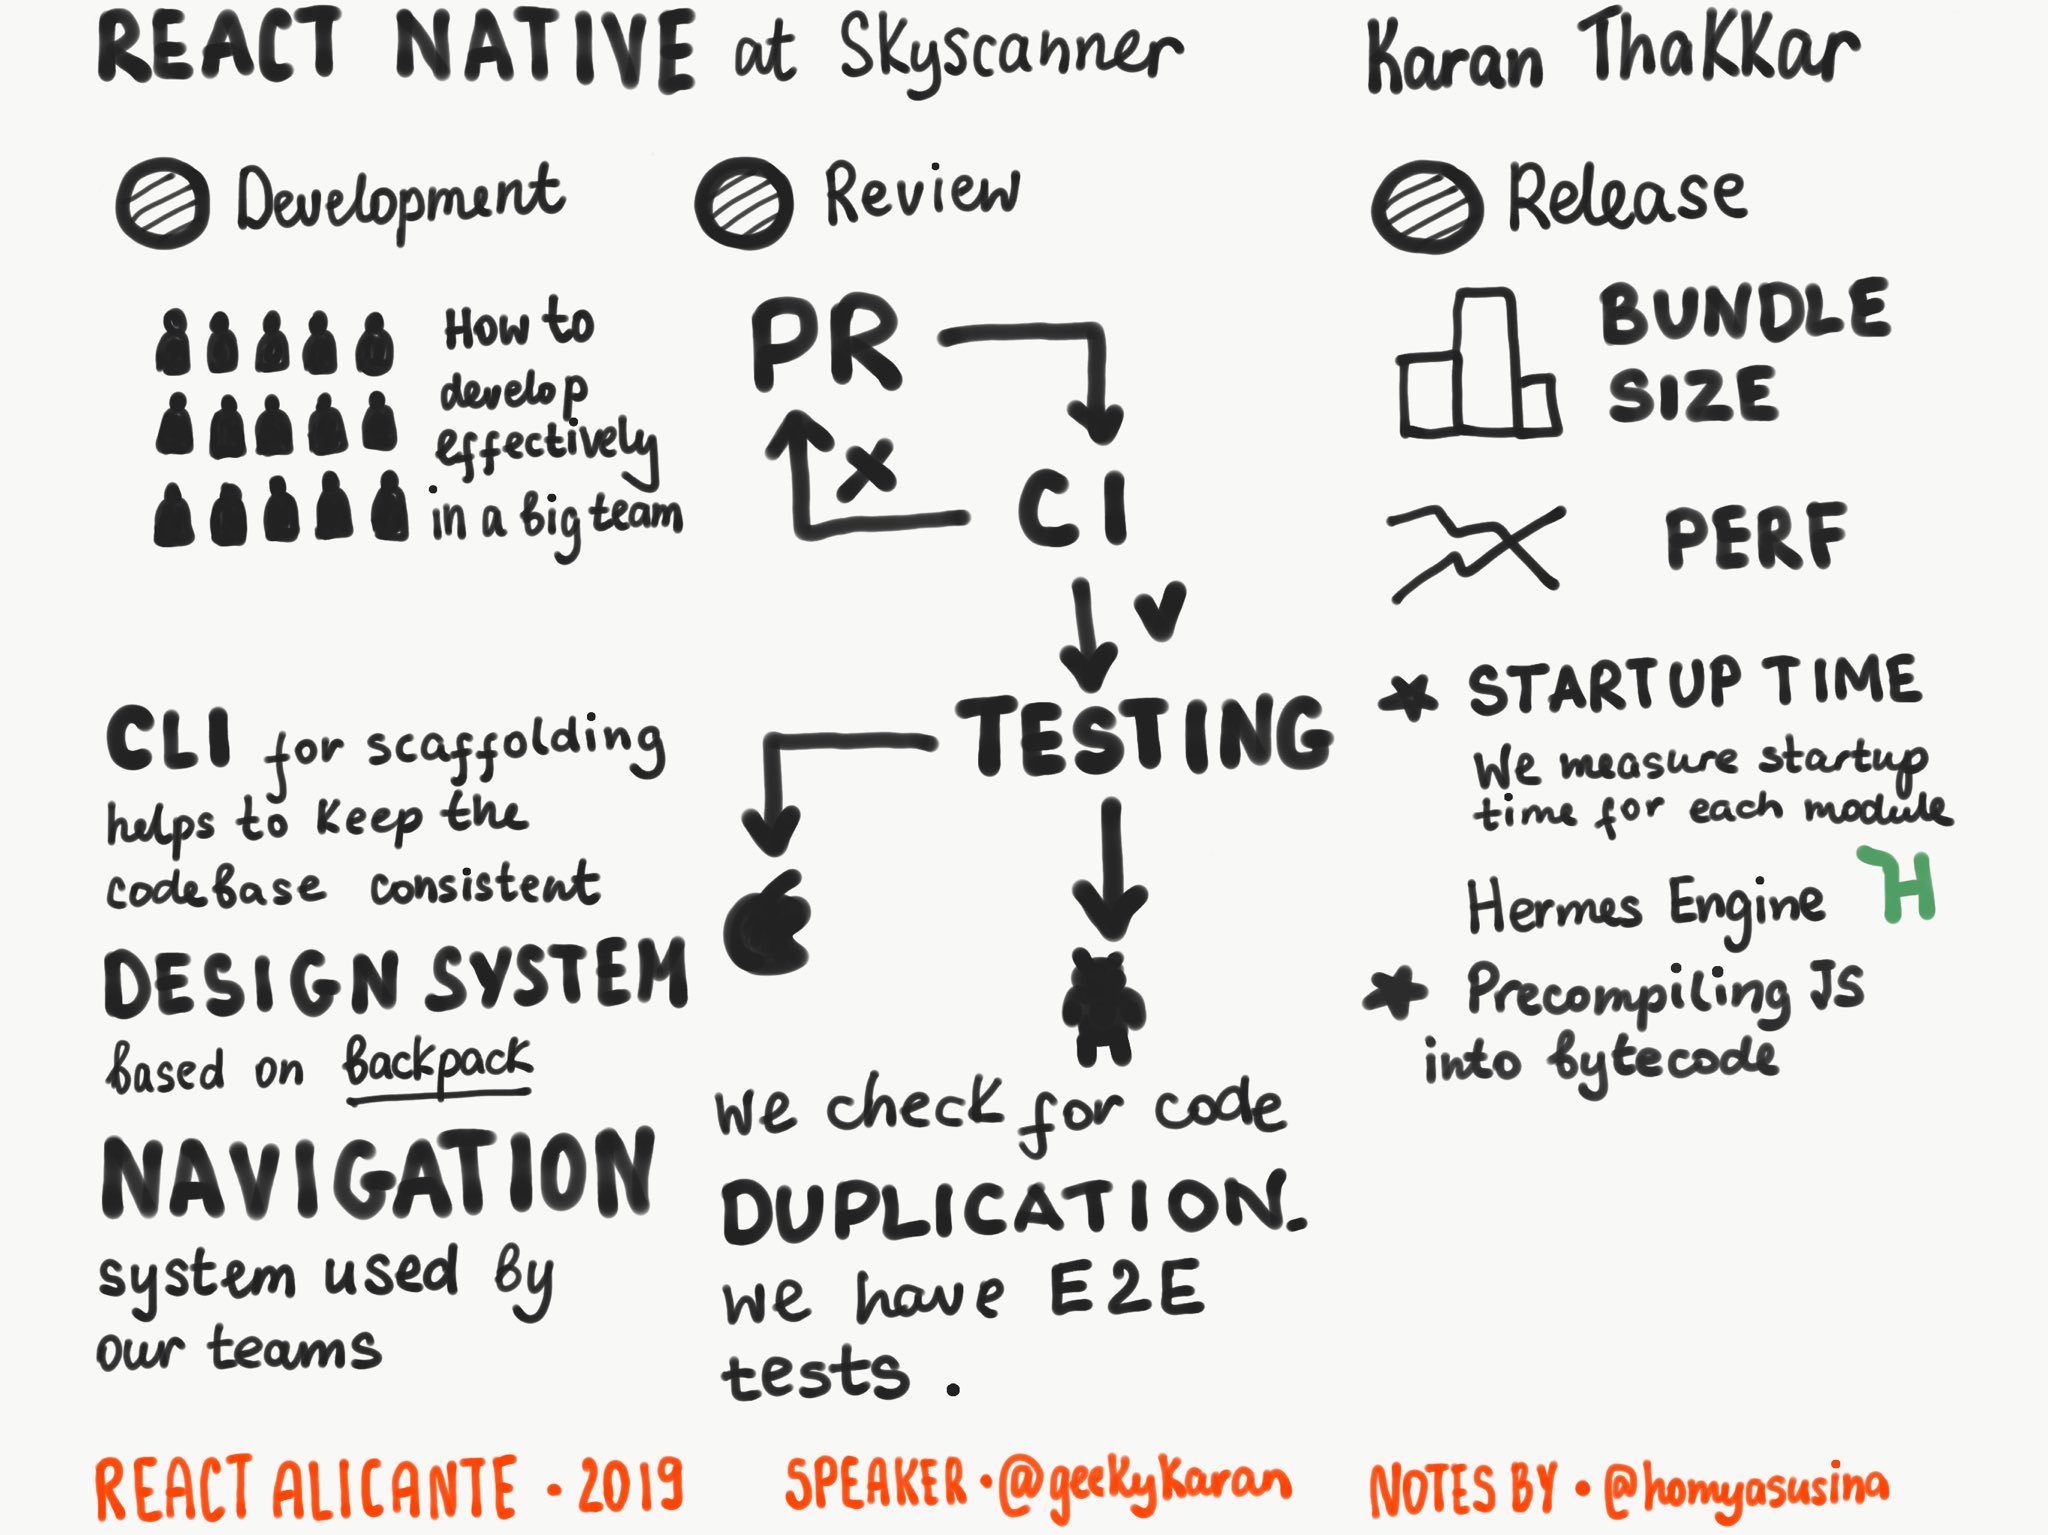 REACT NATIVE at Skyscanner
Karan Thakkar
Development
How to
develop
effectively
in a big team
CLI for scaffolding
helps to keep the
codebase consistent
DESIGN SYSTEM
based on backpack
NAVIGATION
system used by
our teams
Review
PR
CI
TESTING
we check for code
DUPLICATION.
we have E2E
tests.
Release
BUNDLE
SIZE
PERF
STARTUP TIME
We measure startup
time for each module
Hermes Engine H
Precompiling JS
into bytecode
REACT ALICANTE • 2019
SPEAKER • @geekykaran
NOTES BY • @homyasusina